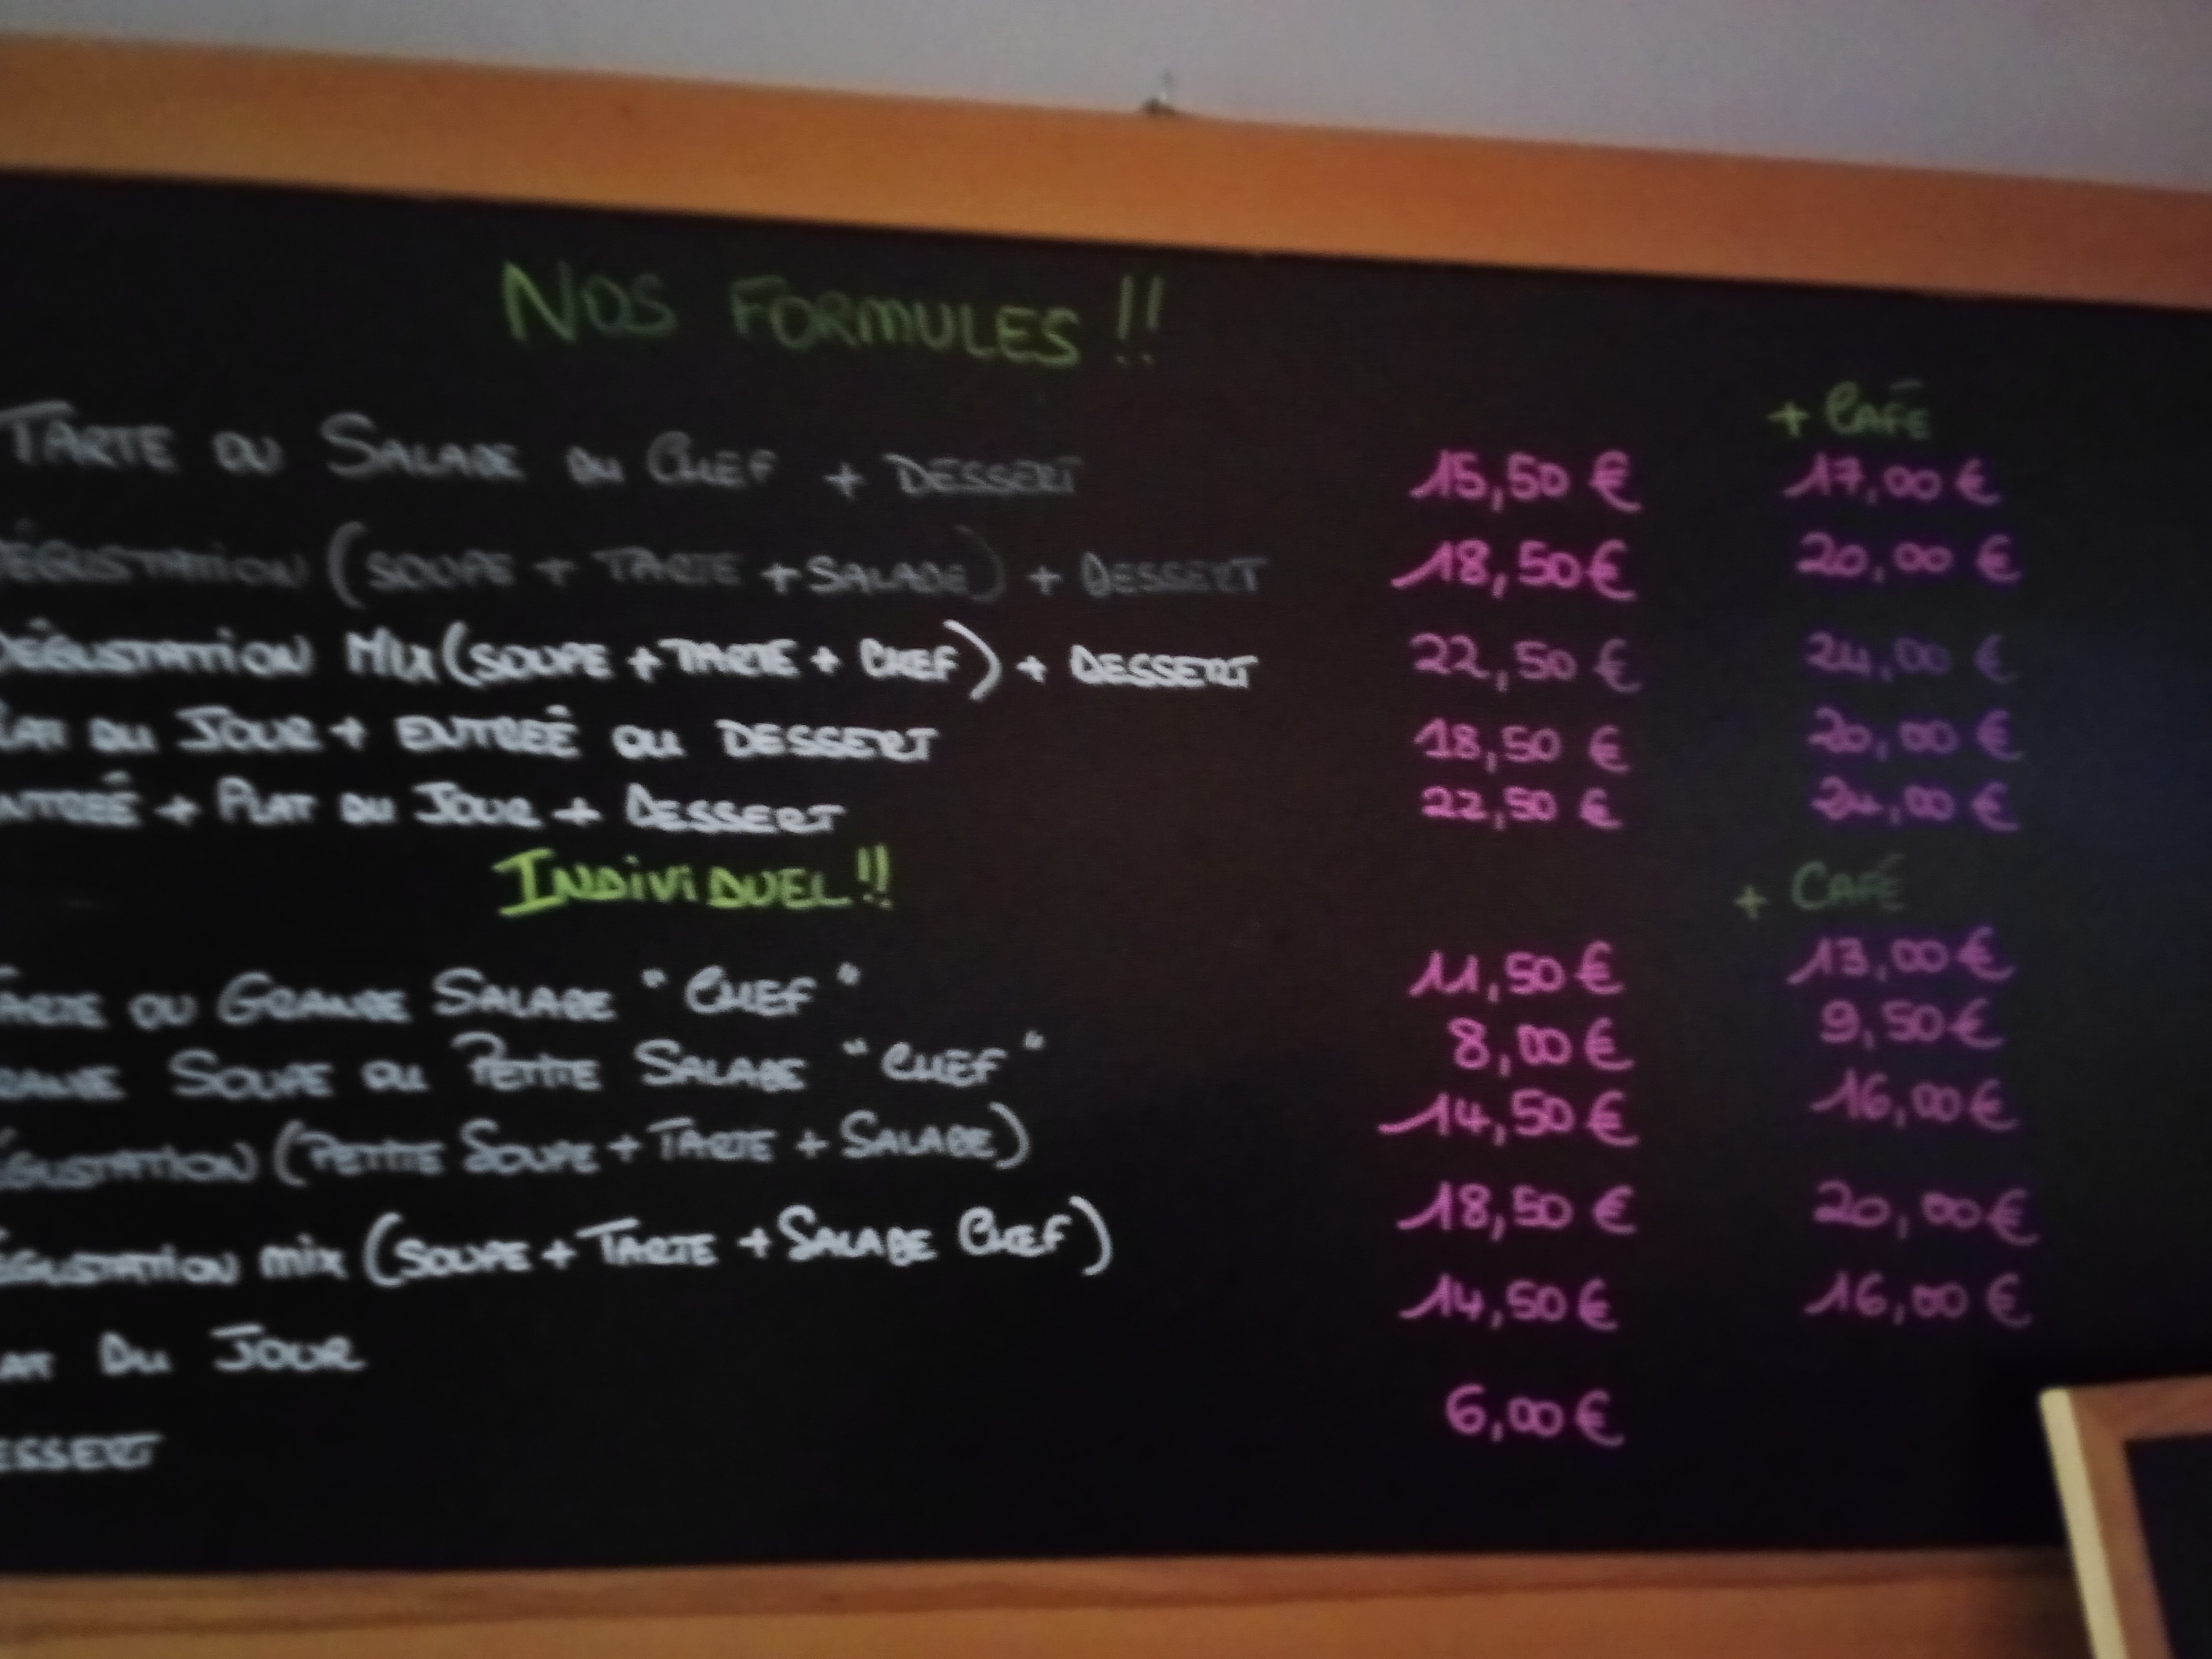 NOS FORMULES !!
+ CAFÉ
TARTE OU SALADE DU CHEF + DESSERT 15,50 € 17,00 €
DÉGUSTATION (SOUPE + TARTE + SALADE) + DESSERT 18,50 € 20,00 €
DÉGUSTATION MIX (SOUPE + TARTE + CHEF) + DESSERT 22,50 € 24,00 €
PLAT DU JOUR + ENTREÉ OU DESSERT 18,50 € 20,00 €
NTREÉ + PLAT DU JOUR + DESSERT 22,50 € 24,00 €
INDIVIDUEL !!
+ CAFÉ
TARTE OU GRANDE SALADE "CHEF" 11,50 € 13,00 €
RANDE SOUPE OU PETITE SALADE "CHEF" 8,00 € 9,50 €
ÉGUSTATION (PETITE SOUPE + TARTE + SALADE) 14,50 € 16,00 €
ÉGUSTATION MIX (SOUPE + TARTE + SALADE CHEF) 18,50 € 20,00 €
LAT DU JOUR 14,50 € 16,00 €
ESSERT 6,00 €